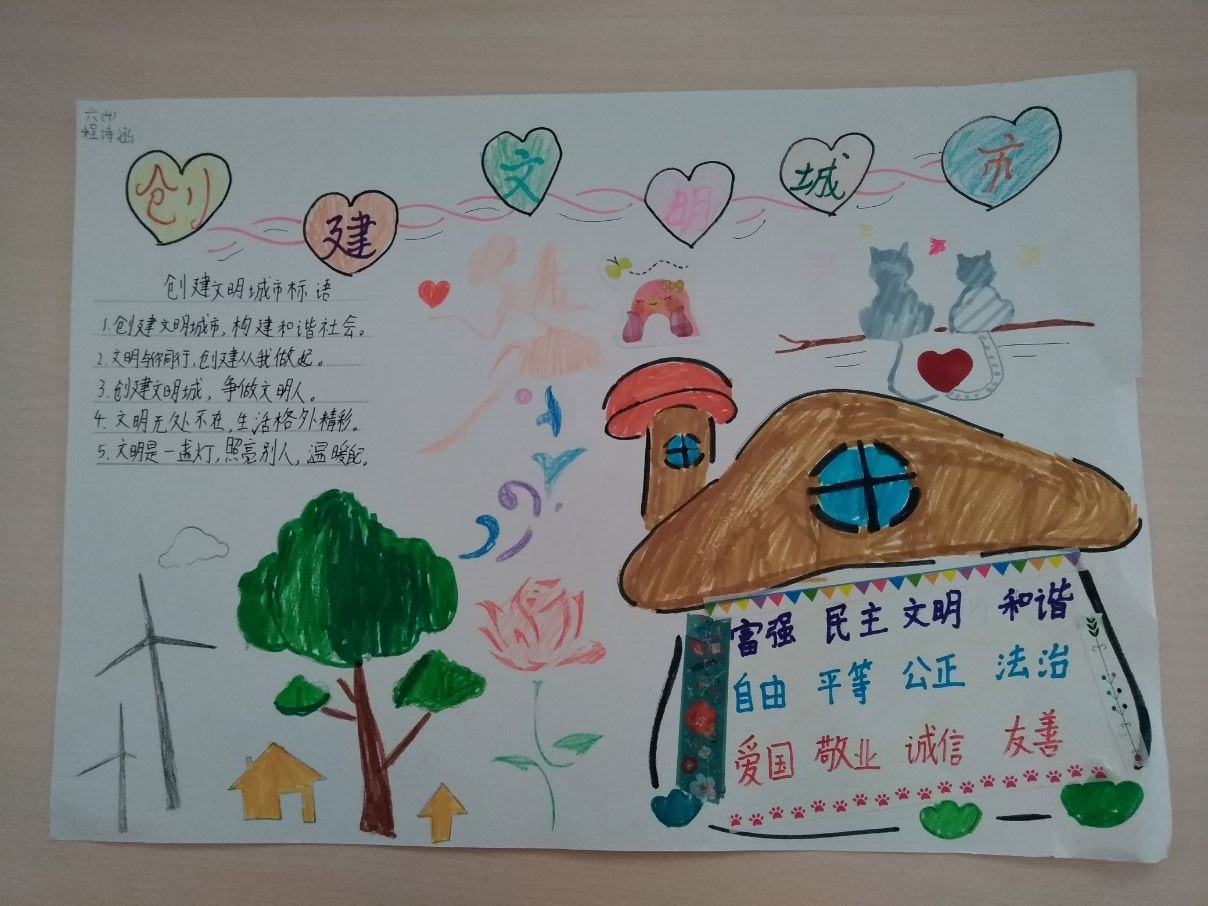 六(4)
程诗涵
创建文明城市
创建文明城市标语
1.创建文明城市,构建和谐社会。
2.文明与你同行,创建从我做起。
3.创建文明城,争做文明人。
4.文明无处不在,生活格外精彩。
5.文明是一盏灯,照亮别人,温暖自己。
富强 民主 文明 和谐
自由 平等 公正 法治
爱国 敬业 诚信 友善